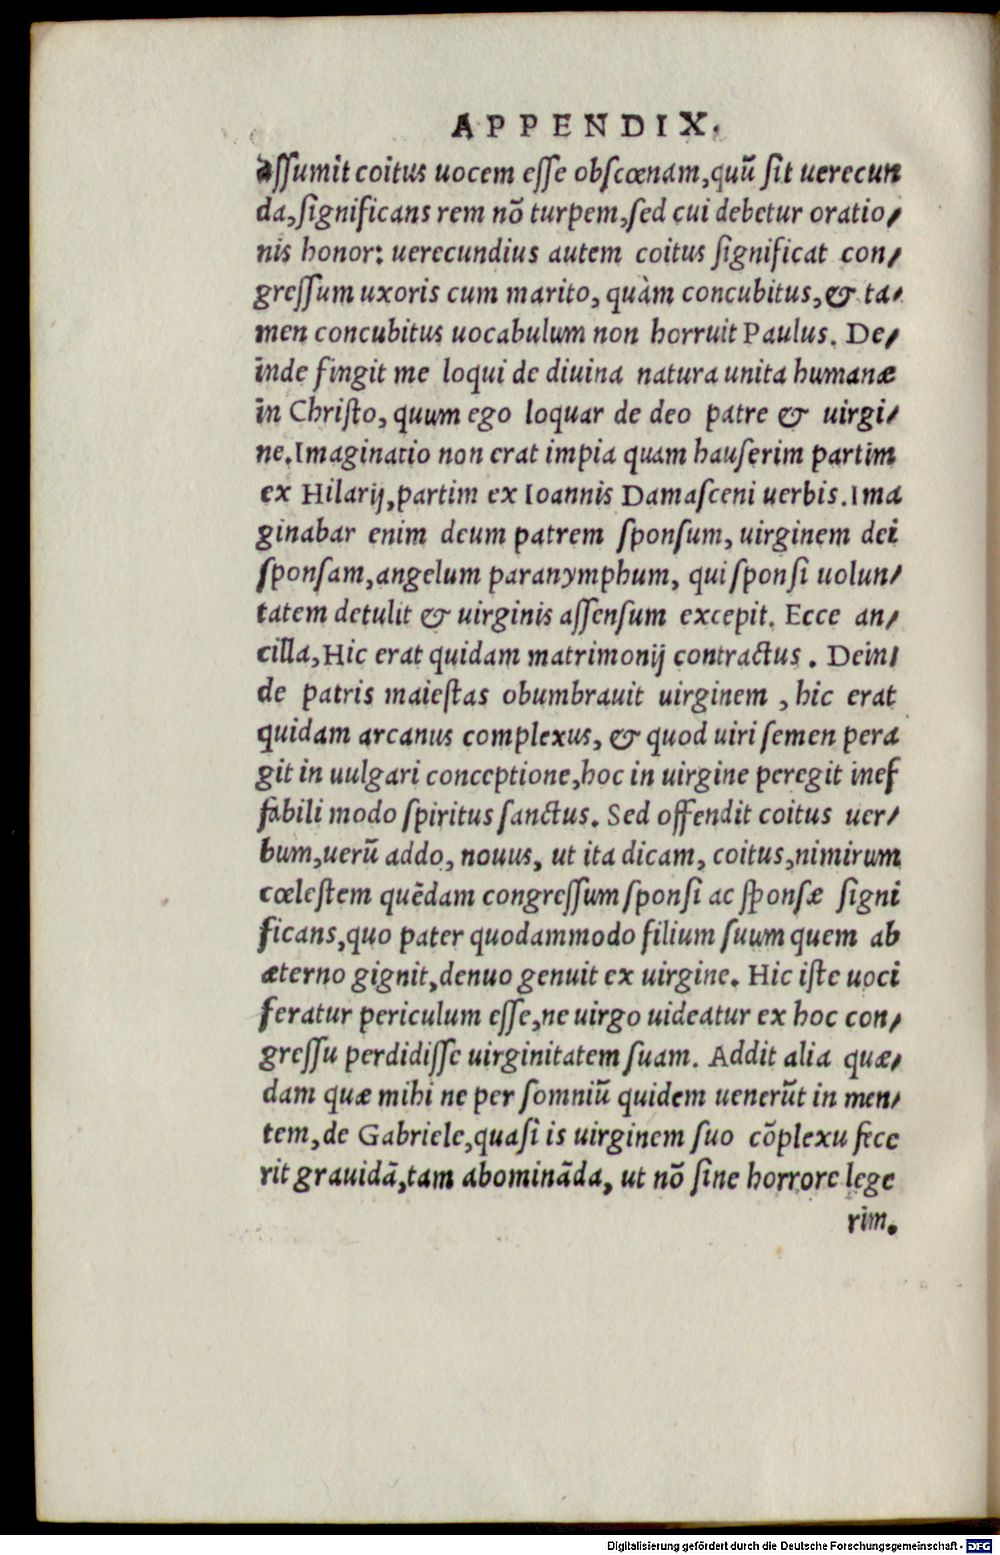 APPENDIX.
assumit coitus uocem esse obscœnam,quũ sit uerecun
da,significans rem nõ turpem,sed cui debetur oratio/
nis honor: uerecundius autem coitus significat con/
gressum uxoris cum marito, quàm concubitus,& ta/
men concubitus uocabulum non horruit Paulus. De/
inde fingit me loqui de diuina natura unita humanæ
in Christo, quum ego loquar de deo patre & uirgi/
ne.Imaginatio non erat impia quam hauserim partim
ex Hilarij,partim ex Ioannis Damasceni uerbis.Ima
ginabar enim deum patrem sponsum, uirginem dei
sponsam,angelum paranymphum, qui sponsi uolun/
tatem detulit & uirginis assensum excepit. Ecce an/
cilla,Hic erat quidam matrimonij contractus . Dein/
de patris maiestas obumbrauit uirginem , hic erat
quidam arcanus complexus, & quod uiri semen pera
git in uulgari conceptione,hoc in uirgine peregit inef
fabili modo spiritus sanctus. Sed offendit coitus uer/
bum,uerũ addo, nouus, ut ita dicam, coitus,nimirum
cœlestem quẽdam congressum sponsi ac sponsæ signi
ficans,quo pater quodammodo filium suum quem ab
æterno gignit,denuo genuit ex uirgine. Hic iste uoci
feratur periculum esse,ne uirgo uideatur ex hoc con/
gressu perdidisse uirginitatem suam. Addit alia quæ/
dam quæ mihi ne per somniũ quidem uenerũt in men/
tem,de Gabriele,quasi is uirginem suo cõplexu fece
rit grauidã,tam abominãda, ut nõ sine horrore lege
rim.
Digitalisierung gefördert durch die Deutsche Forschungsgemeinschaft - DFG